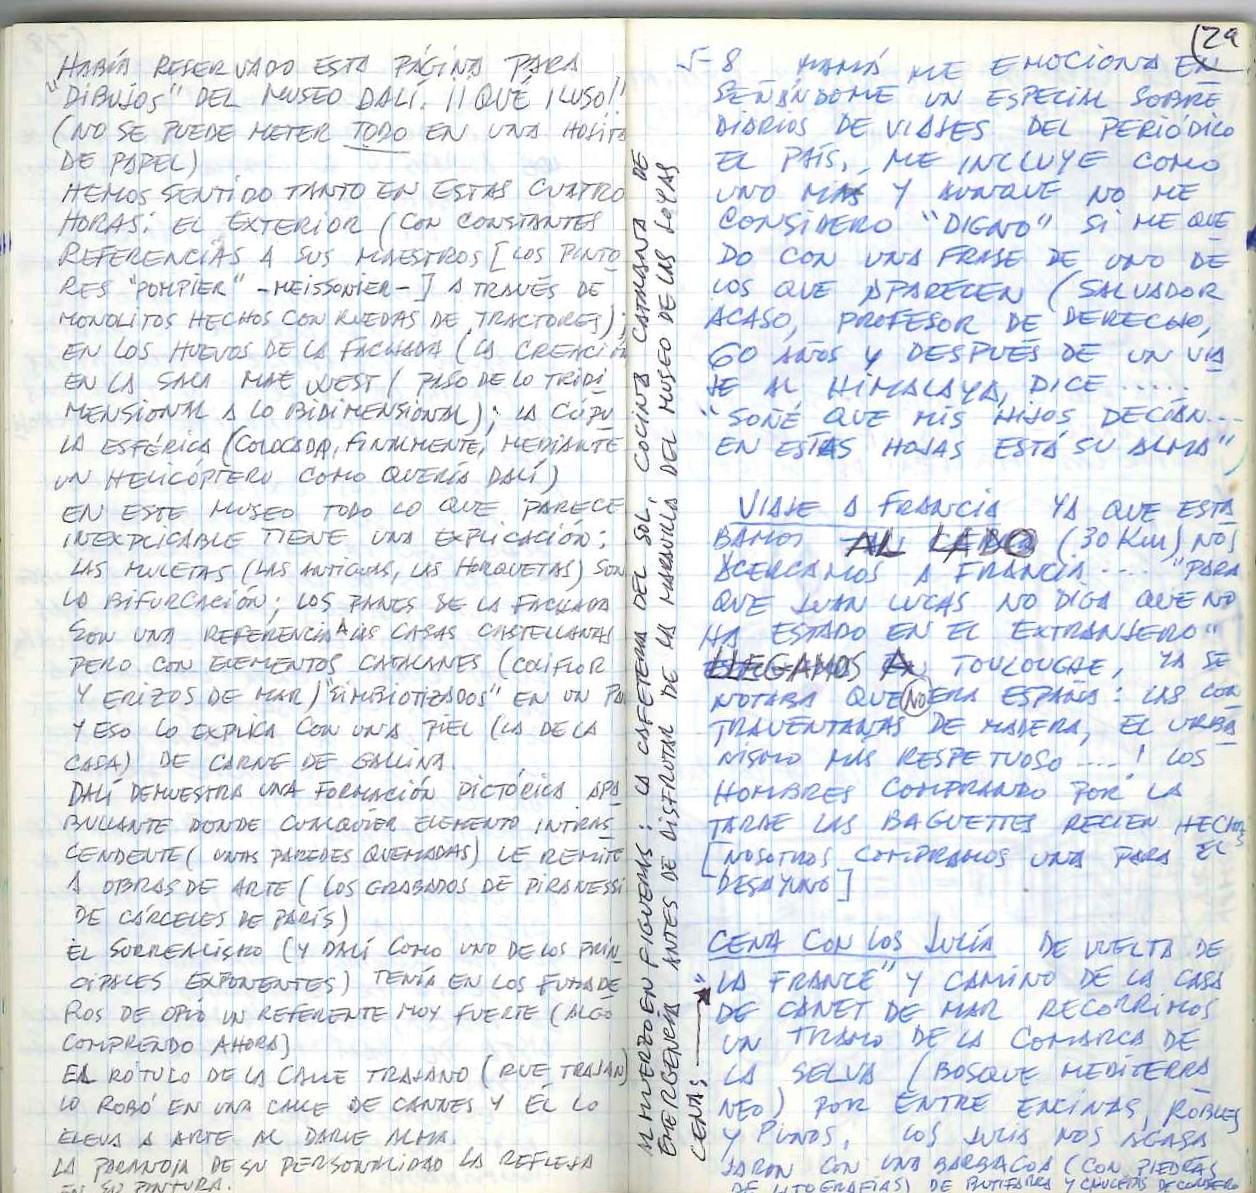 HABÍA RESERVADO ESTA PÁGINA PARA
"DIBUJOS" DEL MUSEO DALÍ. ¡¡QUÉ ILUSO!!
(NO SE PUEDE METER TODO EN UNA HOJITA
DE PAPEL)
HEMOS SENTIDO TANTO EN ESTAS CUATRO
HORAS: EL EXTERIOR (CON CONSTANTES
REFERENCIAS A SUS MAESTROS [LOS PINTO
RES "POMPIER" -MEISSONIER-] A TRAVÉS DE
MONOLITOS HECHOS CON RUEDAS DE TRACTORES);
EN LOS HUEVOS DE LA FACHADA (LA CREACIÓN
EN LA SALA MAE WEST (PASO DE LO TRIDI
MENSIONAL A LO BIDIMENSIONAL); LA CÚPU
LA ESFÉRICA (COLOCADA, FINALMENTE, MEDIANTE
UN HELICÓPTERO COMO QUERÍA DALÍ)
EN ESTE MUSEO TODO LO QUE PARECE
INEXPLICABLE TIENE UNA EXPLICACIÓN:
LAS MULETAS (LAS ANTIGUAS, LAS HORQUETAS) SON
LA BIFURCACIÓN; LOS PANES DE LA FACHADA
SON UNA REFERENCIA A LAS CASAS CASTELLANAS
PERO CON ELEMENTOS CATALANES (COLIFLOR
Y ERIZOS DE MAR) "SIMBIOTIZADOS" EN UN PA
Y ESO LO EXPLICA CON UNA PIEL (LA DE LA
CASA) DE CARNE DE GALLINA.
DALÍ DEMUESTRA UNA FORMACIÓN PICTÓRICA APA
BULLANTE DONDE CUALQUIER ELEMENTO INTRAS
CENDENTE (UNAS PAREDES QUEMADAS) LE REMITE
A OBRAS DE ARTE (LOS GRABADOS DE PIRANESSI
DE CÁRCELES DE PARÍS)
EL SURREALISMO (Y DALÍ COMO UNO DE LOS PRIN
CIPALES EXPONENTES) TENÍA EN LOS FUMADE
ROS DE OPIO UN REFERENTE MUY FUERTE (ALGO
COMPRENDO AHORA)
EL RÓTULO DE LA CALLE TRAJANO (RUE TRAJAN)
LO ROBÓ EN UNA CALLE DE CANNES Y ÉL LO
ELEVA A ARTE AL DARLE ALMA.
LA PARANOIA DE SU PERSONALIDAD LA REFLEJA
EN SU PINTURA.
ALMUERZO EN FIGUERAS: LA CAFETERIA DEL SOL, COCINA CATALANA DE
EMERGENCIA ANTES DE DISFRUTAR DE LA MARAVILLA DEL MUSEO DE LAS JOYAS
CENAS
29
5-8 MAMÁ ME EMOCIONA EN
SEÑÁNDOME UN ESPECIAL SOBRE
DIARIOS DE VIAJES DEL PERIÓDICO
EL PAÍS, ME INCLUYE COMO
UNO MÁS Y AUNQUE NO ME
CONSIDERO "DIGNO" SI ME QUE
DO CON UNA FRASE DE UNO DE
LOS QUE APARECEN (SALVADOR
ACASO, PROFESOR DE DERECHO,
60 AÑOS Y DESPUÉS DE UN VIA
JE AL HIMALAYA, DICE .....
"SOÑÉ QUE MIS HIJOS DECÍAN...
EN ESTAS HOJAS ESTÁ SU ALMA")
VIAJE A FRANCIA YA QUE ESTA
BAMOS AL LADO (30 Km) NOS
ACERCAMOS A FRANCIA .... "PARA
QUE JUAN LUCAS NO DIGA QUE NO
HA ESTADO EN EL EXTRANJERO"
LLEGAMOS A TOULOUGAE, YA SE
NOTABA QUE NO ERA ESPAÑA: LAS CON
TRAVENTANAS DE MADERA, EL URBA
NISMO MÁS RESPETUOSO ....! LOS
HOMBRES COMPRANDO POR LA
TARDE LAS BAGUETTES RECIEN HECHAS
[NOSOTROS COMPRAMOS UNA PARA EL
DESAYUNO]
CENA CON LOS JULIÁ DE VUELTA DE
"LA FRANCE" Y CAMINO DE LA CASA
DE CANET DE MAR RECORRIMOS
UN TRAMO DE LA COMARCA DE
LA SELVA (BOSQUE MEDITERRA
NEO) POR ENTRE ENCINAS, ROBLES
Y PINOS. LOS JULIÁ NOS AGASA
JARON CON UNA BARBACOA (CON PIEDRAS
DE LITOGRAFÍAS) DE BUTIFARRA Y CHULETAS DE CORDERO